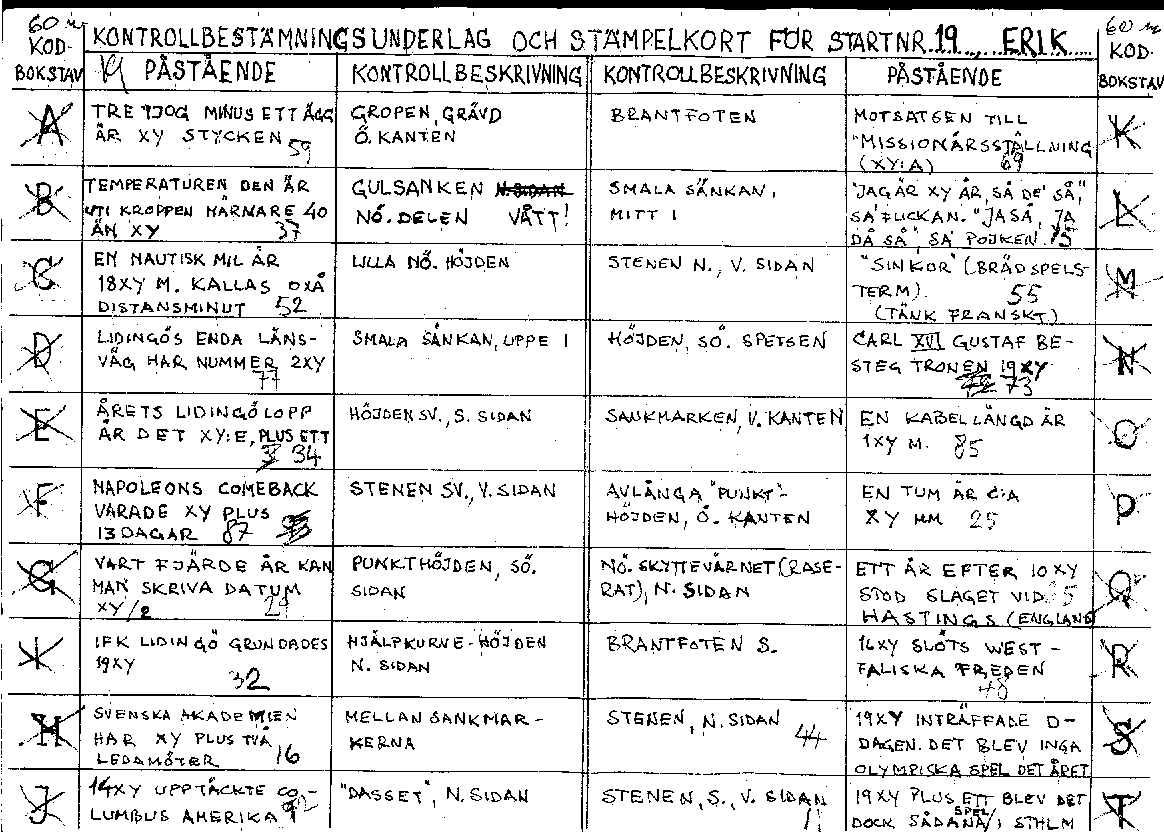 60 m
KOD-
BOKSTAV
KONTROLLBESTÄMNINGSUNDERLAG OCH STÄMPELKORT FÖR STARTNR. 19 ... ERIK ...
60 m
KOD-
BOKSTAV
PÅSTÅENDE
KONTROLLBESKRIVNING
KONTROLLBESKRIVNING
PÅSTÅENDE
A
TRE TJOG MINUS ETT ÄGG
ÄR XY STYCKEN 59
GROPEN, GRÄVD
Ö. KANTEN
BRANTFOTEN
MOTSATSEN TILL
"MISSIONÄRSSTÄLLNING
(XY:A) 69
K
B
TEMPERATUREN DEN ÄR
UTI KROPPEN NÄRMARE 40
ÄN XY 37
GULSANKEN N. SIDAN
NÖ. DELEN VÅTT!
SMALA SÄNKAN,
MITT I
"JAG ÄR XY ÅR, SÅ DE' SÅ",
SA' FLICKAN. "JASÅ, JA
DÅ SÅ", SA' POJKEN. 15
L
C
EN NAUTISK MIL ÄR
18XY M. KALLAS OXÅ
DISTANSMINUT 52
LILLA NÖ. HÖJDEN
STENEN N., V. SIDAN
"SINKOR" (BRÄDSPELS-
TERM). 55
(TÄNK FRANSKT)
M
D
LIDINGÖS ENDA LÄNS-
VÄG HAR NUMMER 2XY
77
SMALA SÄNKAN, UPPE I
HÖJDEN, SÖ. SPETSEN
CARL XVI GUSTAF BE-
STEG TRONEN 19XY
73
N
E
ÅRETS LIDINGÖLOPP
ÄR DET XY:E, PLUS ETT
34
HÖJDEN SV., S. SIDAN
SANKMARKEN, V. KANTEN
EN KABELLÄNGD ÄR
1XY M. 85
O
F
NAPOLEONS COMEBACK
VARADE XY PLUS
13 DAGAR 87
STENEN SV., V. SIDAN
AVLÅNGA "PUNKT"-
HÖJDEN, Ö. KANTEN
EN TUM ÄR C:A
XY MM 25
P
G
VART FJÄRDE ÅR KAN
MAN SKRIVA DATUM
XY/2 29
PUNKTHÖJDEN, SÖ.
SIDAN
NÖ. SKYTTEVÄRNET (RASE-
RAT), N. SIDAN
ETT ÅR EFTER 10XY
STOD SLAGET VID
HASTINGS (ENGLAND
Q
IFK LIDINGÖ GRUNDADES
19XY
32
HJÄLPKURVE-HÖJDEN
N. SIDAN
BRANTFOTEN S.
16XY SLÖTS WEST-
FALISKA FREDEN
48
R
H
SVENSKA AKADEMIEN
HAR XY PLUS TVÅ
LEDAMÖTER 16
MELLAN SANKMAR-
KERNA
STENEN, N. SIDAN
44
19XY INTRÄFFADE D-
DAGEN. DET BLEV INGA
OLYMPISKA SPEL DET ÅRET
S
J
14XY UPPTÄCKTE CO-
LUMBUS AMERIKA 92
"DASSET", N. SIDAN
STENEN, S., V. SIDAN
19XY PLUS ETT BLEV DET
DOCK SÅDANA SPEL I STHLM
T